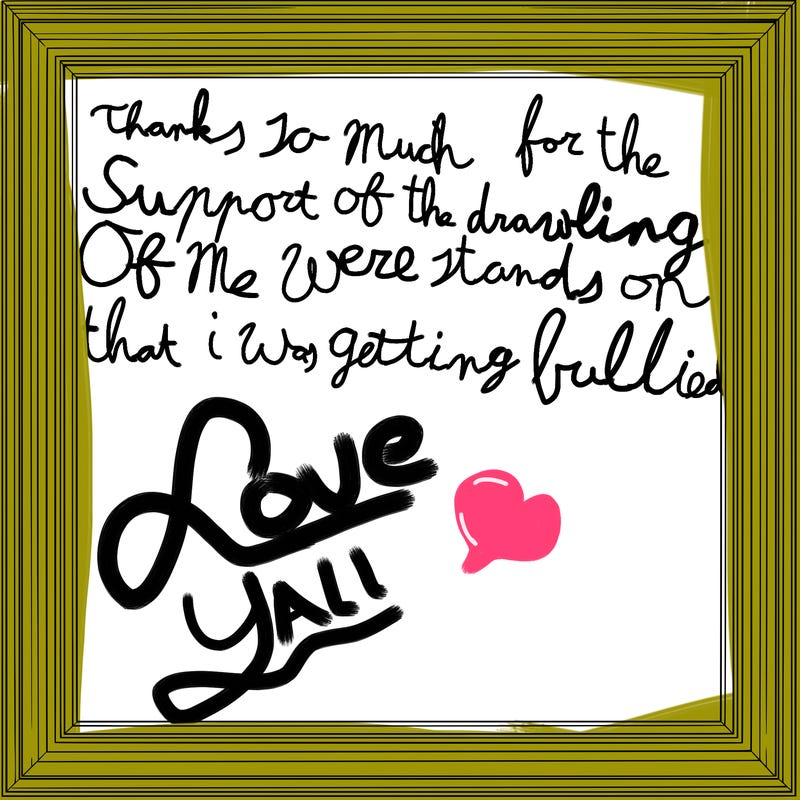 Thanks so Much for the
Support of the drawling
Of Me Were stands on
that i Was getting bullied
Love
YAll